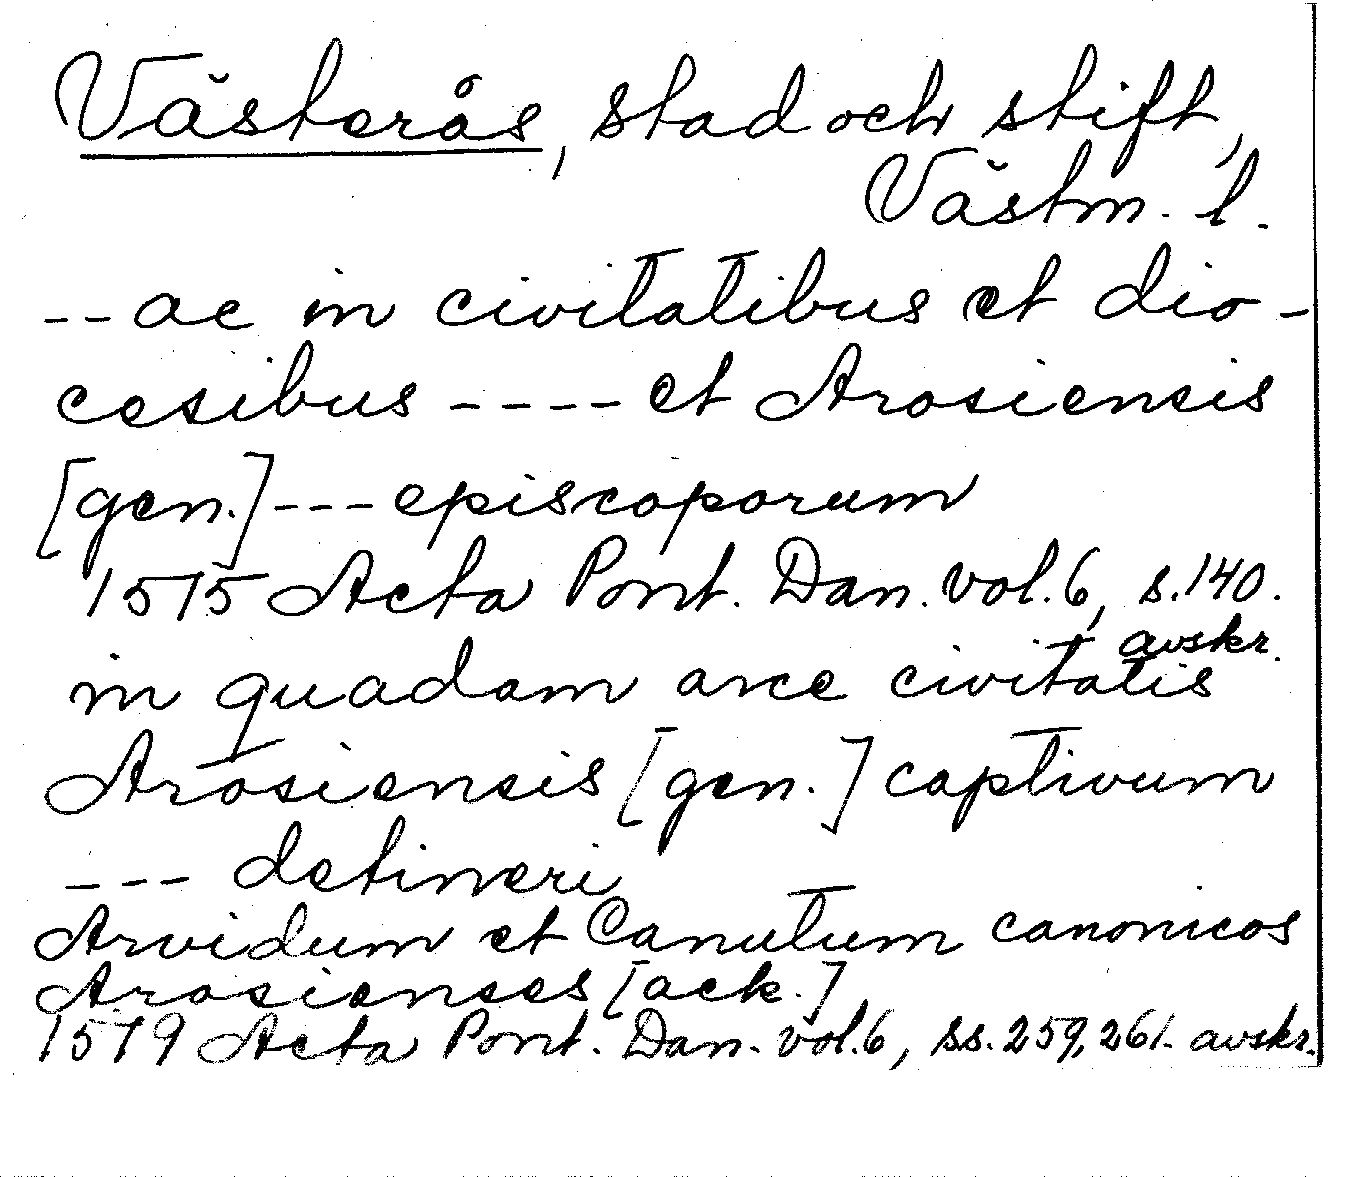 Västerås, stad och stift,
Västm. l.
-- ac in civitatibus et dio-
cesibus ---- et Arosiensis
[gen.] --- episcoporum
1575 Acta Pont. Dan. vol. 6, s. 140.
avskr.
in quadam arce civitatis
Arosiensis [gen.] captivum
--- detineri
Arvidum et Canutum canonicos
Arosienses [ack.]
1579 Acta Pont. Dan. vol. 6, ss. 259, 261. avskr.